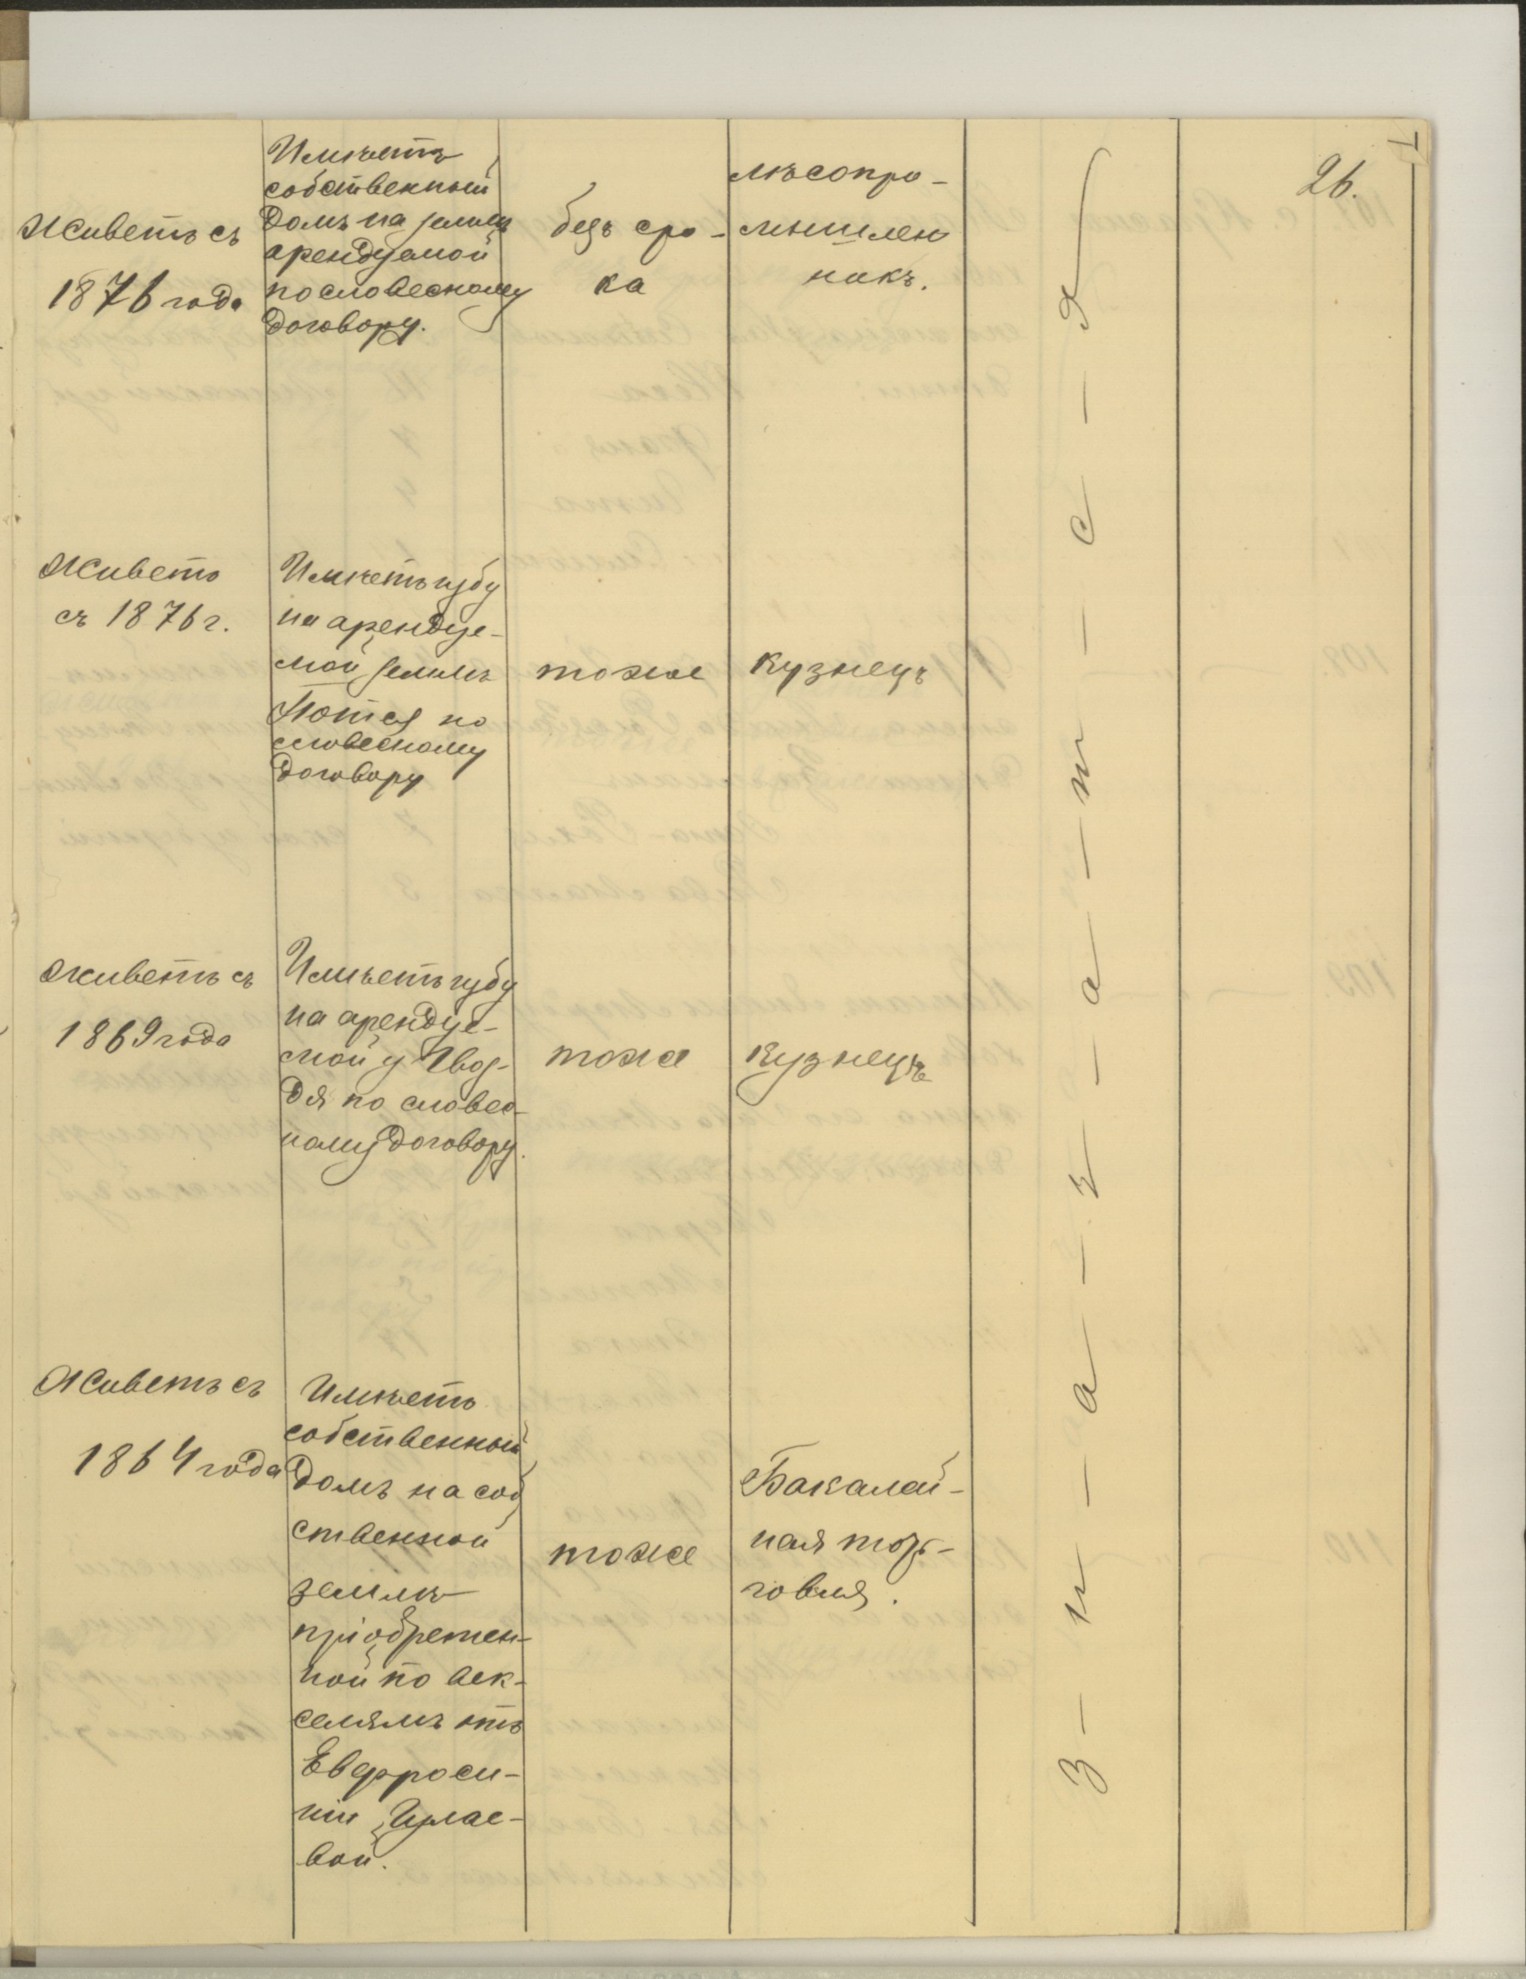 26.
Живетъ съ
1876 года
Имѣетъ
собственный
домъ на землѣ
арендуемой
по словесному
договору.
безъ сро-
ка
лѣсопро-
мышлен
никъ.
Живетъ
съ 1876 г.
Имѣетъ избу
на арендуе-
мой землѣ
по
словесному
договору
тоже
Кузнецъ
Живетъ съ
1869 года
Имѣетъ избу
на арендуе-
мой у Гвоз-
дя по словес-
ному договору.
тоже
Кузнецъ
Живетъ съ
1864 года
Имѣетъ
собственный
домъ на соб
ственной
землѣ
пріобретен-
ной по век-
селямъ отъ
Евфроси-
ніи
вой.
тоже
Бакалей-
ная тор-
говля.
З-н-а-ч-а-т-с-я